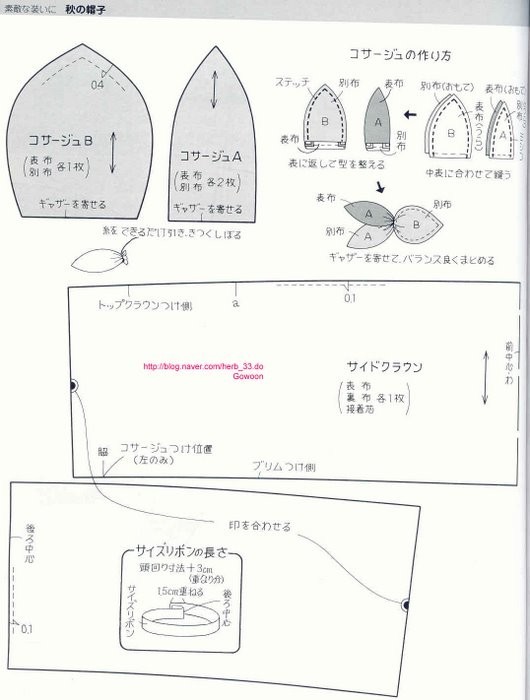 素敵な装いに 秋の帽子
0.4
コサージュB
(表布 別布 各1枚)
ギャザーを寄せる
コサージュA
(表布 別布 各2枚)
ギャザーを寄せる
糸をできるだけ引き、きつくしぼる
コサージュの作り方
ステッチ
別布
表布
別布(おもて)
表布(おもて)
B
A
B
A
表布(うら)
表布
別布
表に返して型を整える
中表に合わせて縫う
表布
別布
A
A
B
別布
ギャザーを寄せて、バランス良くまとめる
トップクラウンつけ側
a
0.1
http://blog.naver.com/herb_33.do
Gowoon
サイドクラウン
(表布 裏布 接着芯 各1枚)
前中心・わ
脇
コサージュつけ位置
(左のみ)
ブリムつけ側
印を合わせる
後ろ中心
0.1
サイズリボンの長さ
頭回り寸法+3cm
(重なり分)
1.5cm重ねる
サイズリボン
後ろ中心